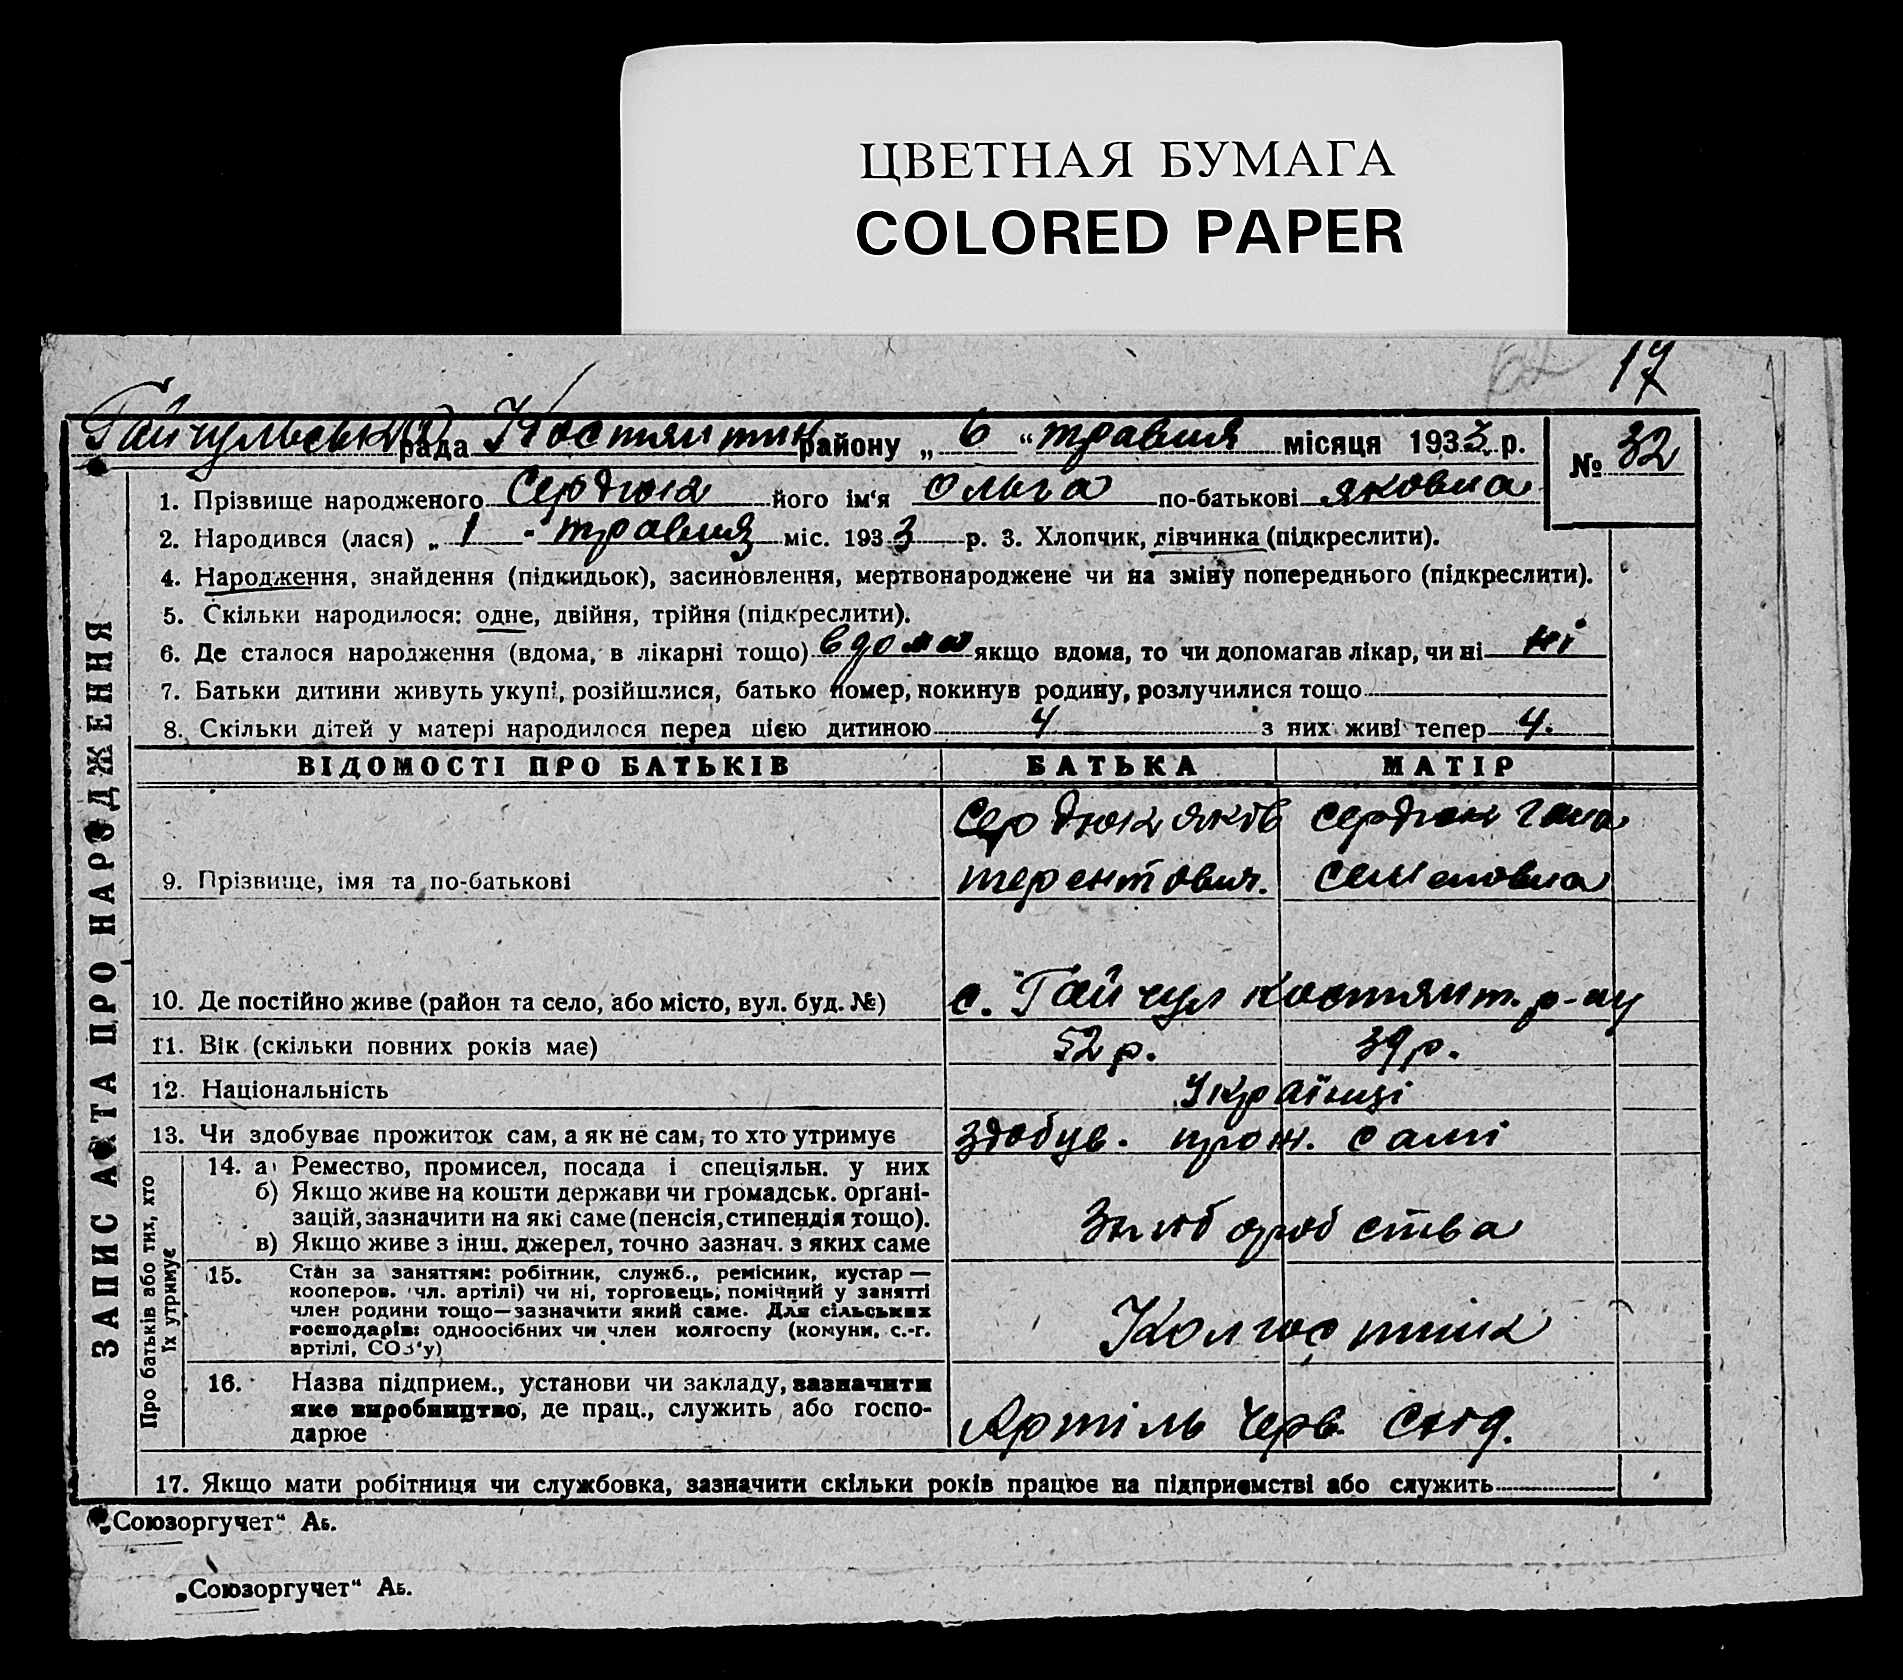 ЦВЕТНАЯ БУМАГА
COLORED PAPER
62 17
Гайчульська рада Костянтин району „ 6 “ травня місяця 1933 р. № 32
1. Прізвище народженого Сердюк його ім‘я Ольга по-батькові яковна
2. Народився (лася) „ 1 - “ травня міс. 1933 р. 3. Хлопчик, дівчинка (підкреслити).
4. Народження, знайдення (підкидьок), засиновлення, мертвонароджене чи на зміну попереднього (підкреслити).
5. Скільки народилося: одне, двійня, трійня (підкреслити).
6. Де сталося народження (вдома, в лікарні тощо) вдома якщо вдома, то чи допомагав лікар, чи ні ні
7. Батьки дитини живуть укупі, розійшлися, батько помер, покинув родину, розлучилися тощо
8. Скільки дітей у матері народилося перед цією дитиною 4 з них живі тепер 4.
ЗАПИС АКТА ПРО НАРОДЖЕННЯ
ВІДОМОСТІ ПРО БАТЬКІВ БАТЬКА МАТІР
Сердюк яків сердюк гана
9. Прізвище, імя та по-батькові терентович. семеновна
10. Де постійно живе (район та село, або місто, вул. буд. №) с. Гайчул Костянт. р-ну
11. Вік (скільки повних років має) 52 р. 39 р.
12. Національність Українці
13. Чи здобуває прожиток сам, а як не сам, то хто утримує здобув. прож. самі
Про батьків або тих, хто їх утримує
14. а) Ремество, промисел, посада і спеціяльн. у них
б) Якщо живе на кошти держави чи громадськ. органі-
зацій, зазначити на які саме (пенсія, стипендія тощо).
в) Якщо живе з інш. джерел, точно зазнач. з яких саме
15. Стан за заняттям: робітник, служб., ремісник, кустар —
кооперов. чл. артілі) чи ні, торговець, помічний у занятті
член родини тощо—зазначити який саме. Для сільських
господарів: одноосібних чи член колгоспу (комуни, с.-г.
артілі, СОЗ‘у)
Колгоспник
16. Назва підприєм., установи чи закладу, зазначити
яке виробництво, де прац., служить або госпо-
дарює
Артіль Черв. Схід.
17. Якщо мати робітниця чи службовка, зазначити скільки років працює на підприємстві або служить
„Союзоргучет“ Аб.
„Союзоргучет“ Аб.